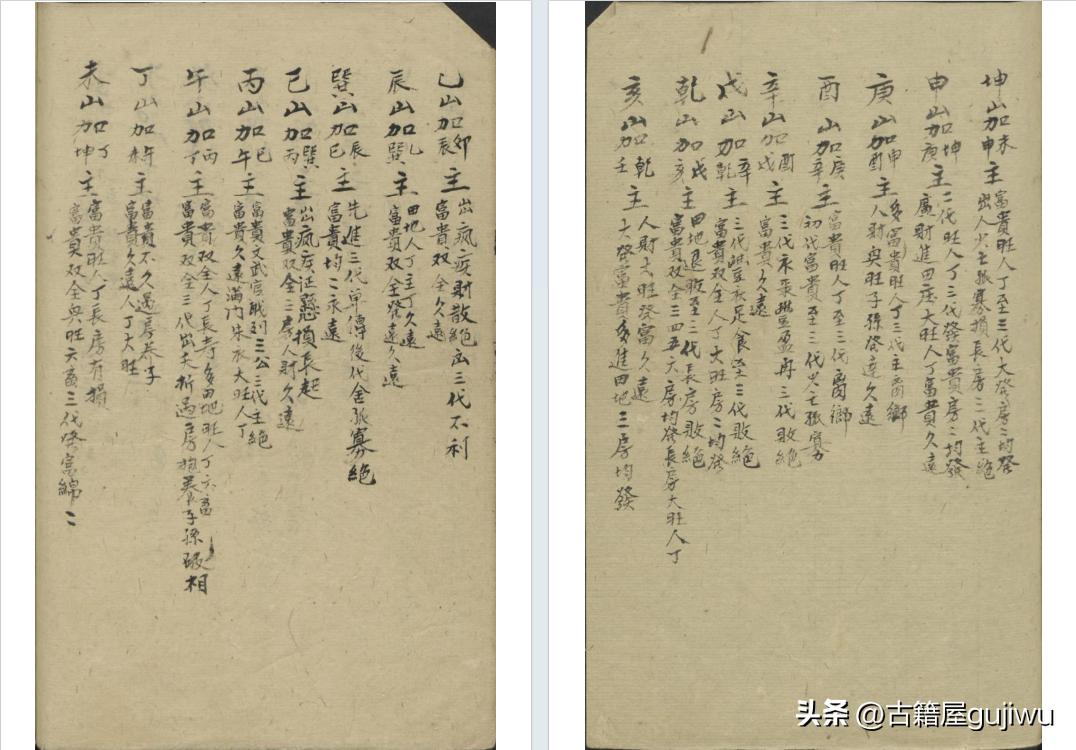 乙山加卯辰主出瘋疾財散絕広三代不利
富貴双全久遠
辰山加乙巽主田地人丁主丁久遠
富貴双全發達久遠
巽山加辰巳主先進三代单傳後代金孤寡絕
富貴均二永遠
巳山加巽丙主出瘋疾证懸損長起
富貴双全二房人財久遠
丙山加巳午主富貴文武官職到三公三代主絕
富貴久遠滿门朱衣大旺人丁
午山加丙丁主富貴双全人丁長寿多田地旺人丁六畜
富貴双全三代出夭折過房抱養子孫破相
丁山加午未主富貴不久過房养子
富貴久遠人丁大旺
未山加丁坤主富貴旺人丁長房有損
富貴双全興旺六畜三代發富綿二
坤山加未申主富貴旺人丁至三代大發房二均發
出人少亡孤寡損長房二代主絕
申山加坤庚主二代旺人丁三代發富貴房二均發
廣財進田庄大旺人丁富貴久遠
庚山加申酉主多富貴旺人丁三代主离鄉
人財興旺子孫發達久遠
酉山加庚辛主富貴旺人丁至三代离鄉
初代富貴至三代少亡孤寡
辛山加酉戌主三代禾乘盈再三代敗絕
富貴久遠
戌山加辛乾主三代衣足食至三代敗絕
富貴双全人丁大旺房二均發
乾山加戌亥主田地退敗至三代長房敗絕
富貴双全三四五六房均發長房大旺人丁
亥山加乾壬主人財大旺發富久遠
大發富貴多進田地三房均發
头条 @古籍屋gujiwu